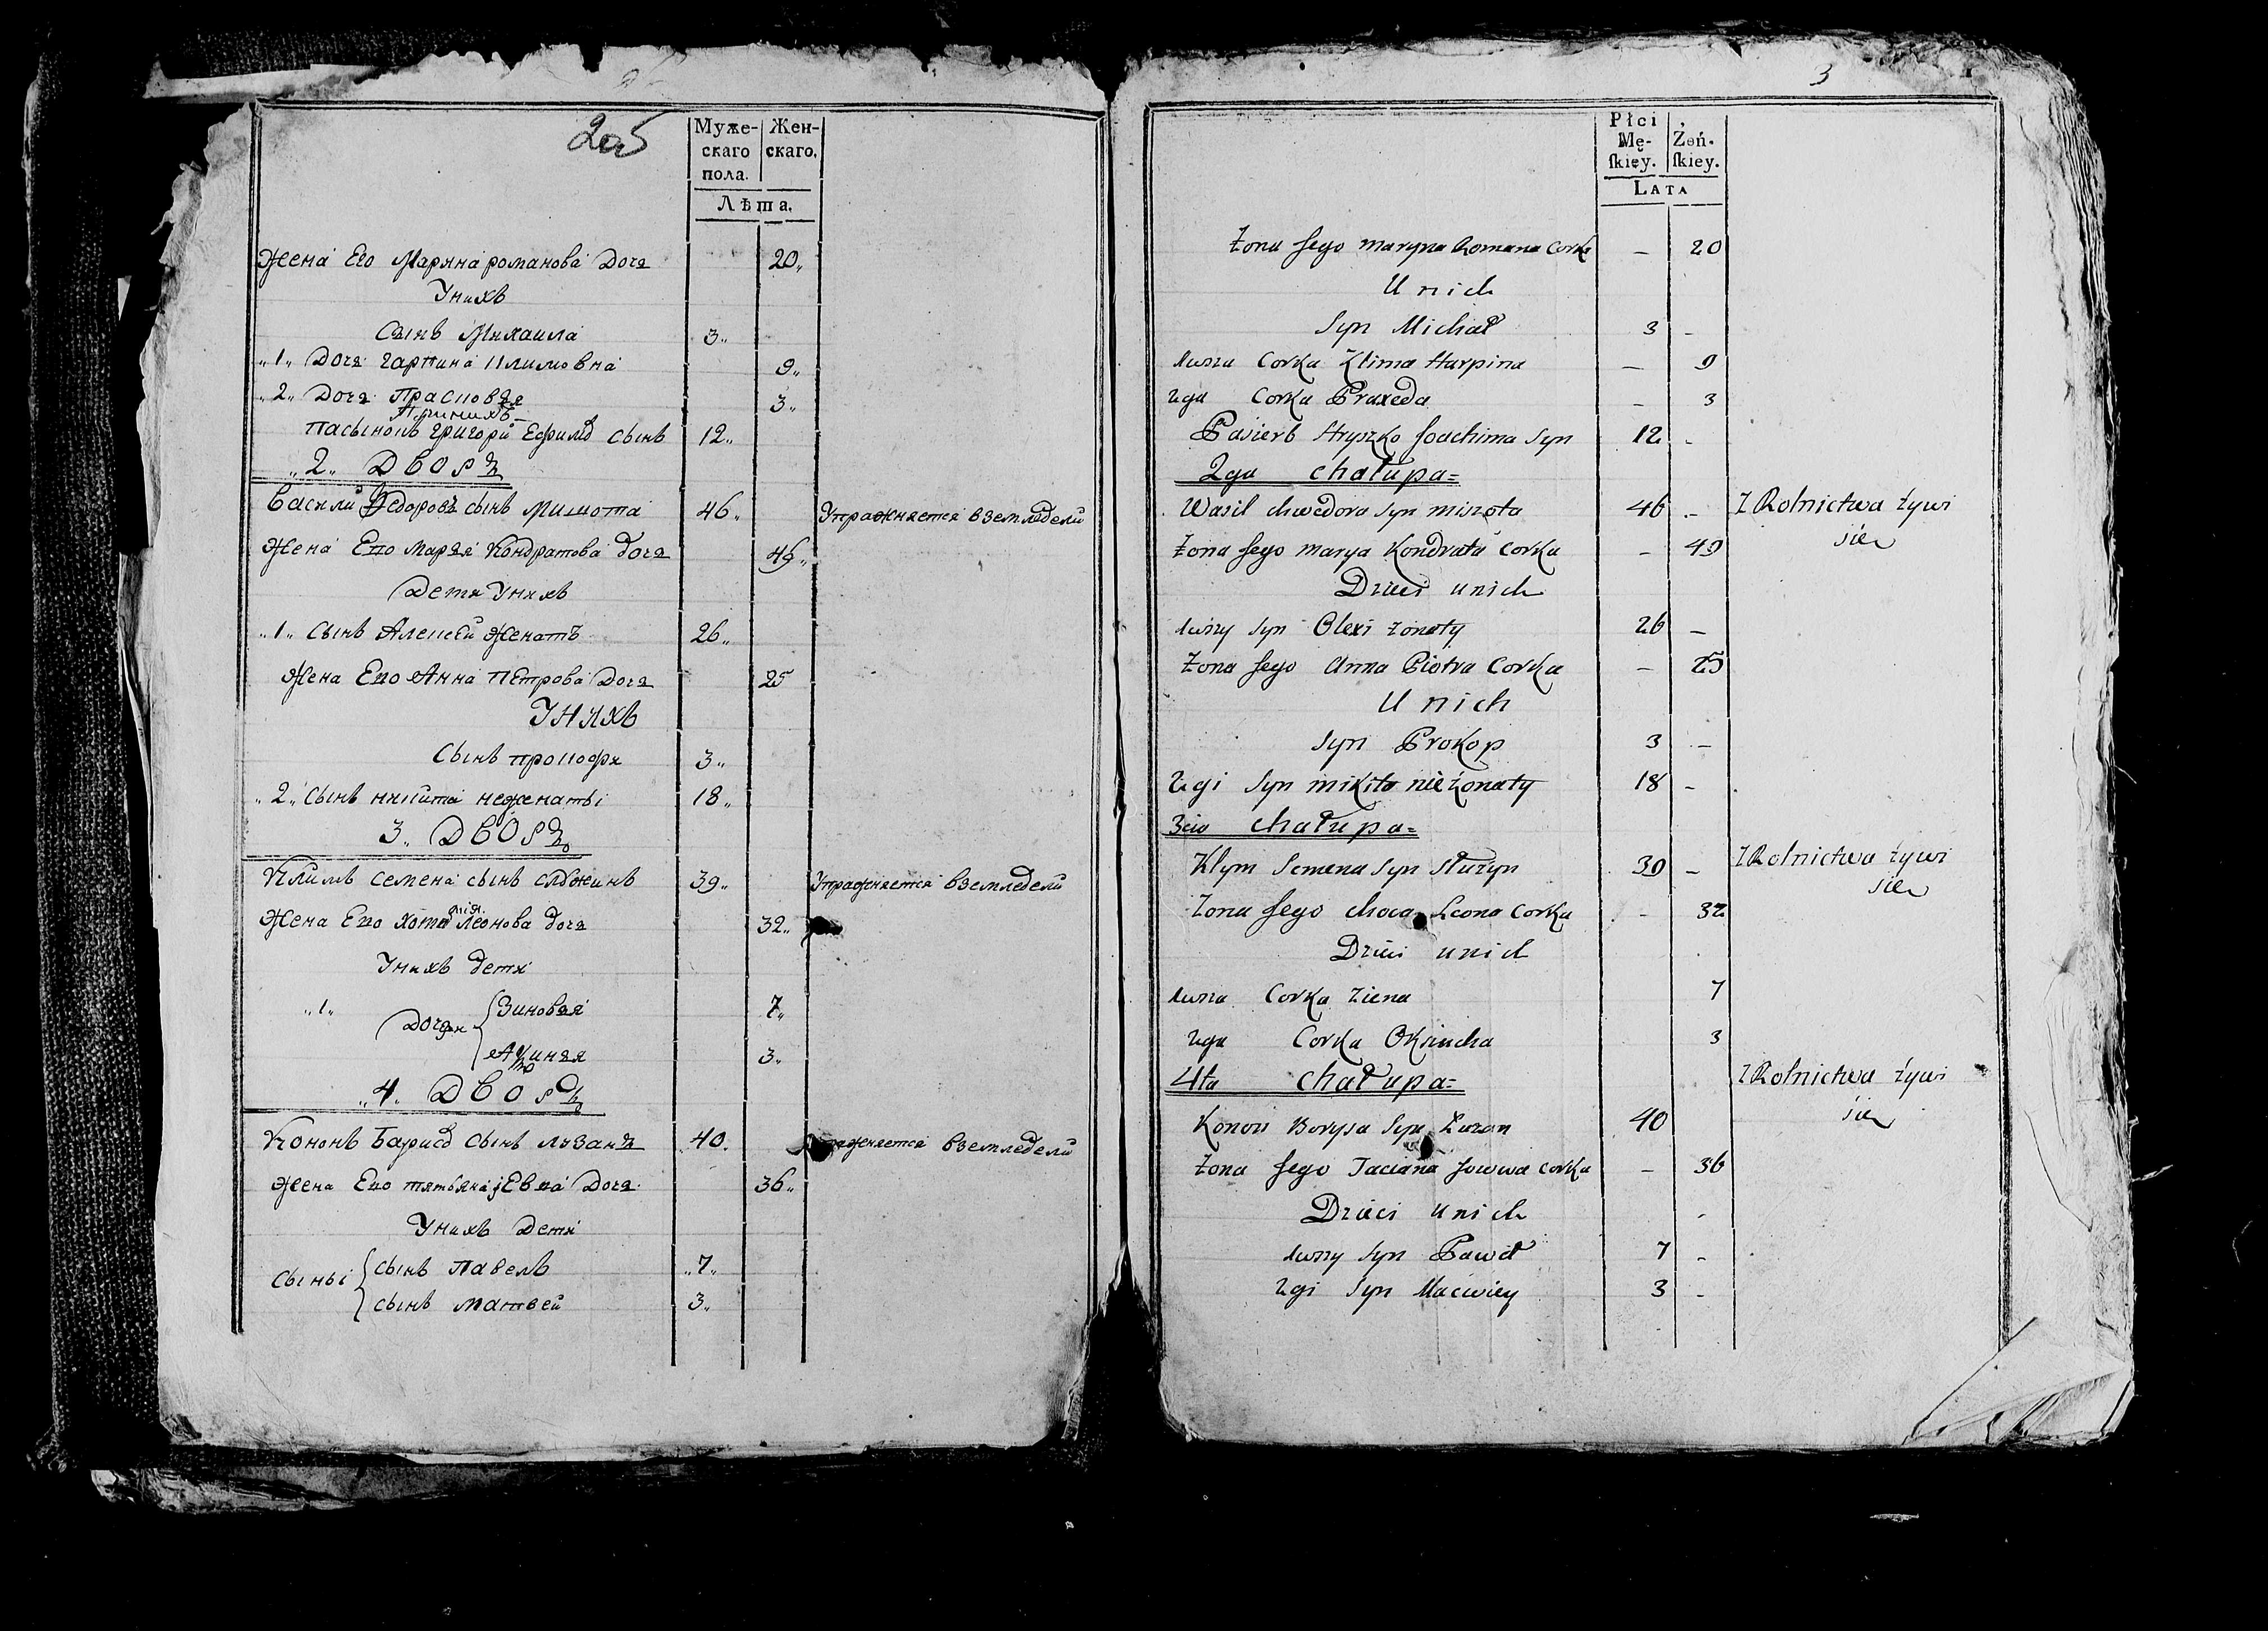 2об
Муже-
скаго
пола.
Жен-
скаго.
Лѣта.
Жена Его Маряна романова Доча 20
Унихъ
Сынъ Михаила 3
1 Доча гарпина Климовна 9
2 Доча Прасковя 3
Принихъ
пасынокъ григори Ефимо сынъ 12
2 Дворъ
Васили Федоровъ сынъ Мишота 46 Упражняется вземледели
Жена Его Маря Кондратова доча 49
Дети Унихъ
1 Сынъ Алексей Женатъ 26
Жена Его Анна Петрова Доча 25
Унихъ
Сынъ прокофи 3
2 Сынъ никита неженаты 18
3 Дворъ
Климъ Семена сынъ служинъ 39 Упражняется вземледели
Жена Его Леонова доча 32
Унихъ дети
1 Дочери Зиновя 7
3
4. Дворъ
Кононъ Барисо Сынъ лузанъ 40 вземледели
Жена Его тятьяна Доча 36
Унихъ Дети
Сыны Сынъ Павелъ 7
Сынъ матвей 3
3
Płci
Mę-
ſkiey.
Żeń-
ſkiey.
Lata
Żona Jego maryna Romana Corka — 20
U nich
Syn Michał 3 -
1wsza Corka Klima Harpina — 9
2ga Corka Praxeda - 3
Pasierb Hryszko Joachima Syn 12 -
2ga chałupa=
Wasil chwedora Syn miszota 46 - Z Rolnictwa żywi
się
Żona Jego marya Kondrata Corka - 49
Dzieci unich
1wszy Syn Olexi żonaty 26 —
Żona Jego Anna Piotra Corka — 25
U nich
Syn Prokop 3 —
2gi Syn mikita nieżonaty 18 -
3cia chałupa=
Klym Semena Syn Służyn 39 - Z Rolnictwa żywi
się
Żona Jego Leona Corka - 32
Dzieci unich
1wsza Corka Ziena 7
2ga Corka Oksincha 3
4ta chałupa= Z Rolnictwa żywi
się
Konon Borysa Syn Łuzan 40
Żona Jego Taciana Corka — 36
Dzieci unich -
1wszy Syn Paweł 7 -
2gi Syn Maciwiey 3 -